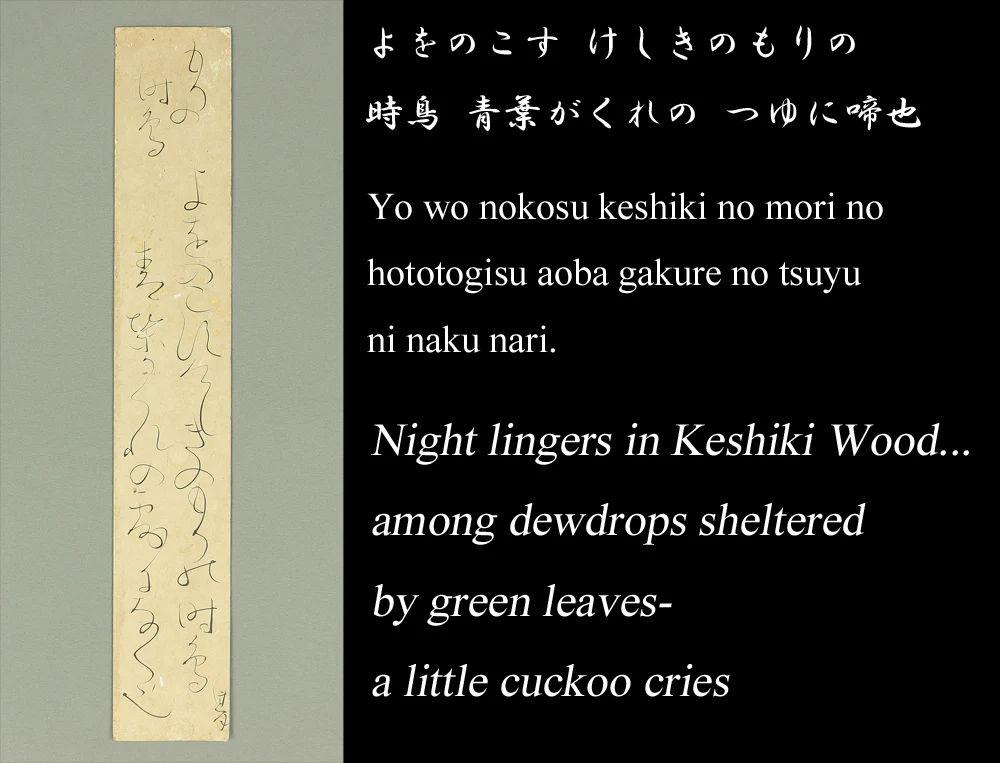 もりの
時鳥
よをのこすけしきのもりの時鳥
青葉かくれの露になく也
よをのこす けしきのもりの
時鳥 青葉がくれの つゆに啼也
Yo wo nokosu keshiki no mori no
hototogisu aoba gakure no tsuyu
ni naku nari.
Night lingers in Keshiki Wood...
among dewdrops sheltered
by green leaves-
a little cuckoo cries